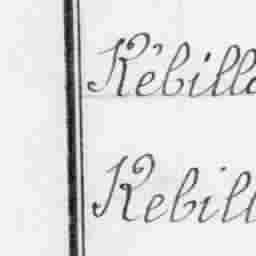 Kébilla
Kebill